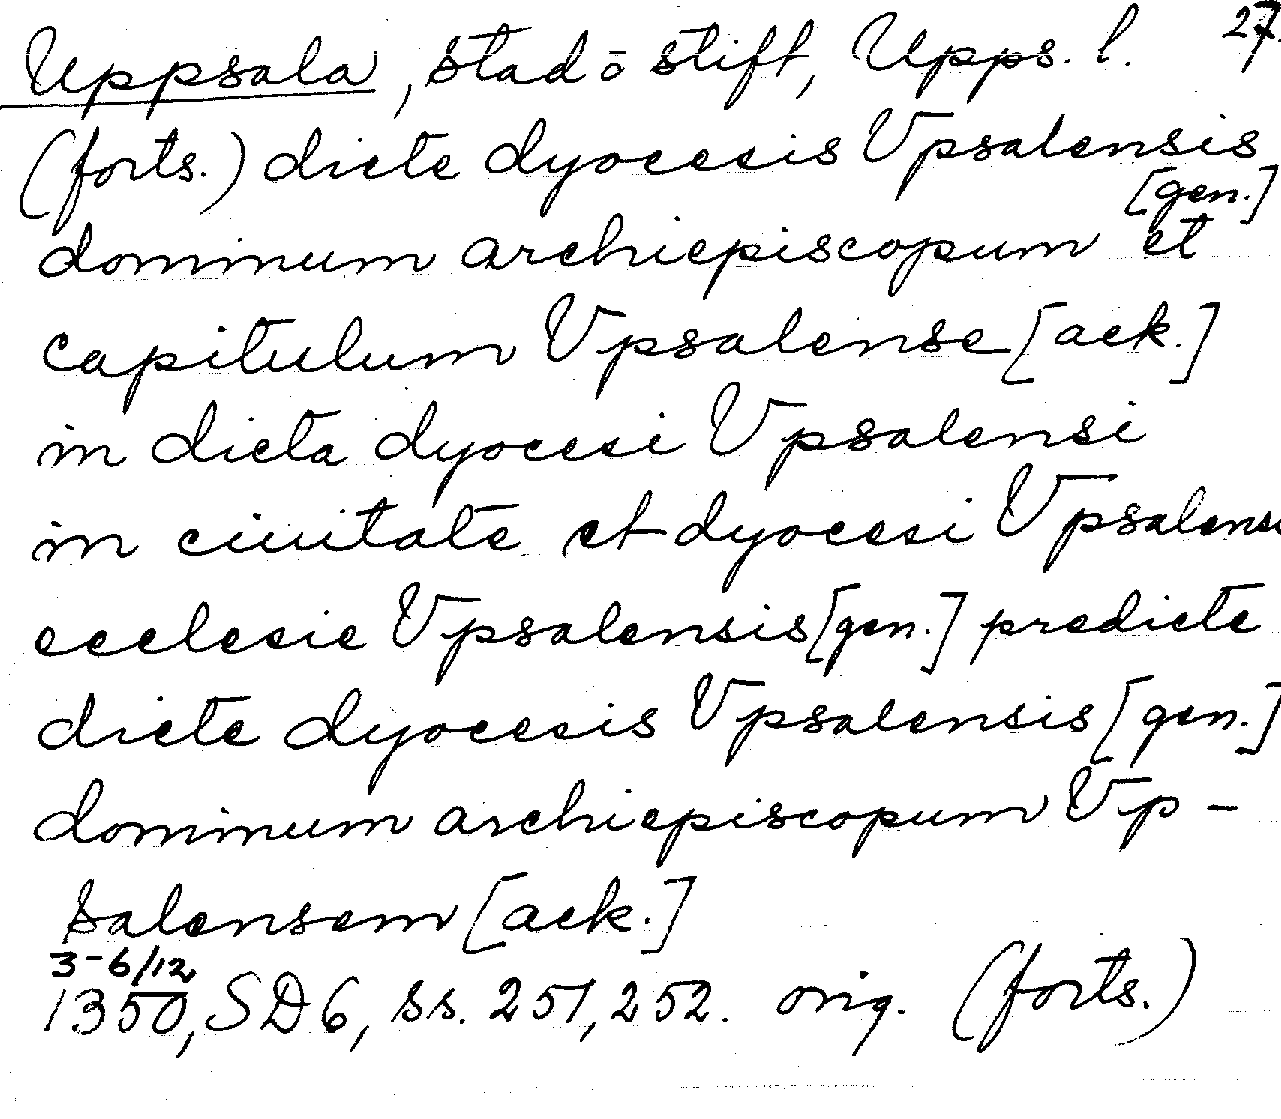 Uppsala, stad o stift, Upps. l. 27.
(forts.) dicte dyocesis Vpsalensis
[gen.]
dominum archiepiscopum et
capitulum Vpsalense [ack.]
in dicta dyocesi Vpsalensi
in ciuitate et dyocesi Vpsalensi
ecclesie Vpsalensis [gen.] predicte
dicte dyocesis Vpsalensis [gen.]
dominum archiepiscopum Vp-
salensem [ack.]
3-6/12
1350, SD6, ss. 251, 252. orig. (forts.)